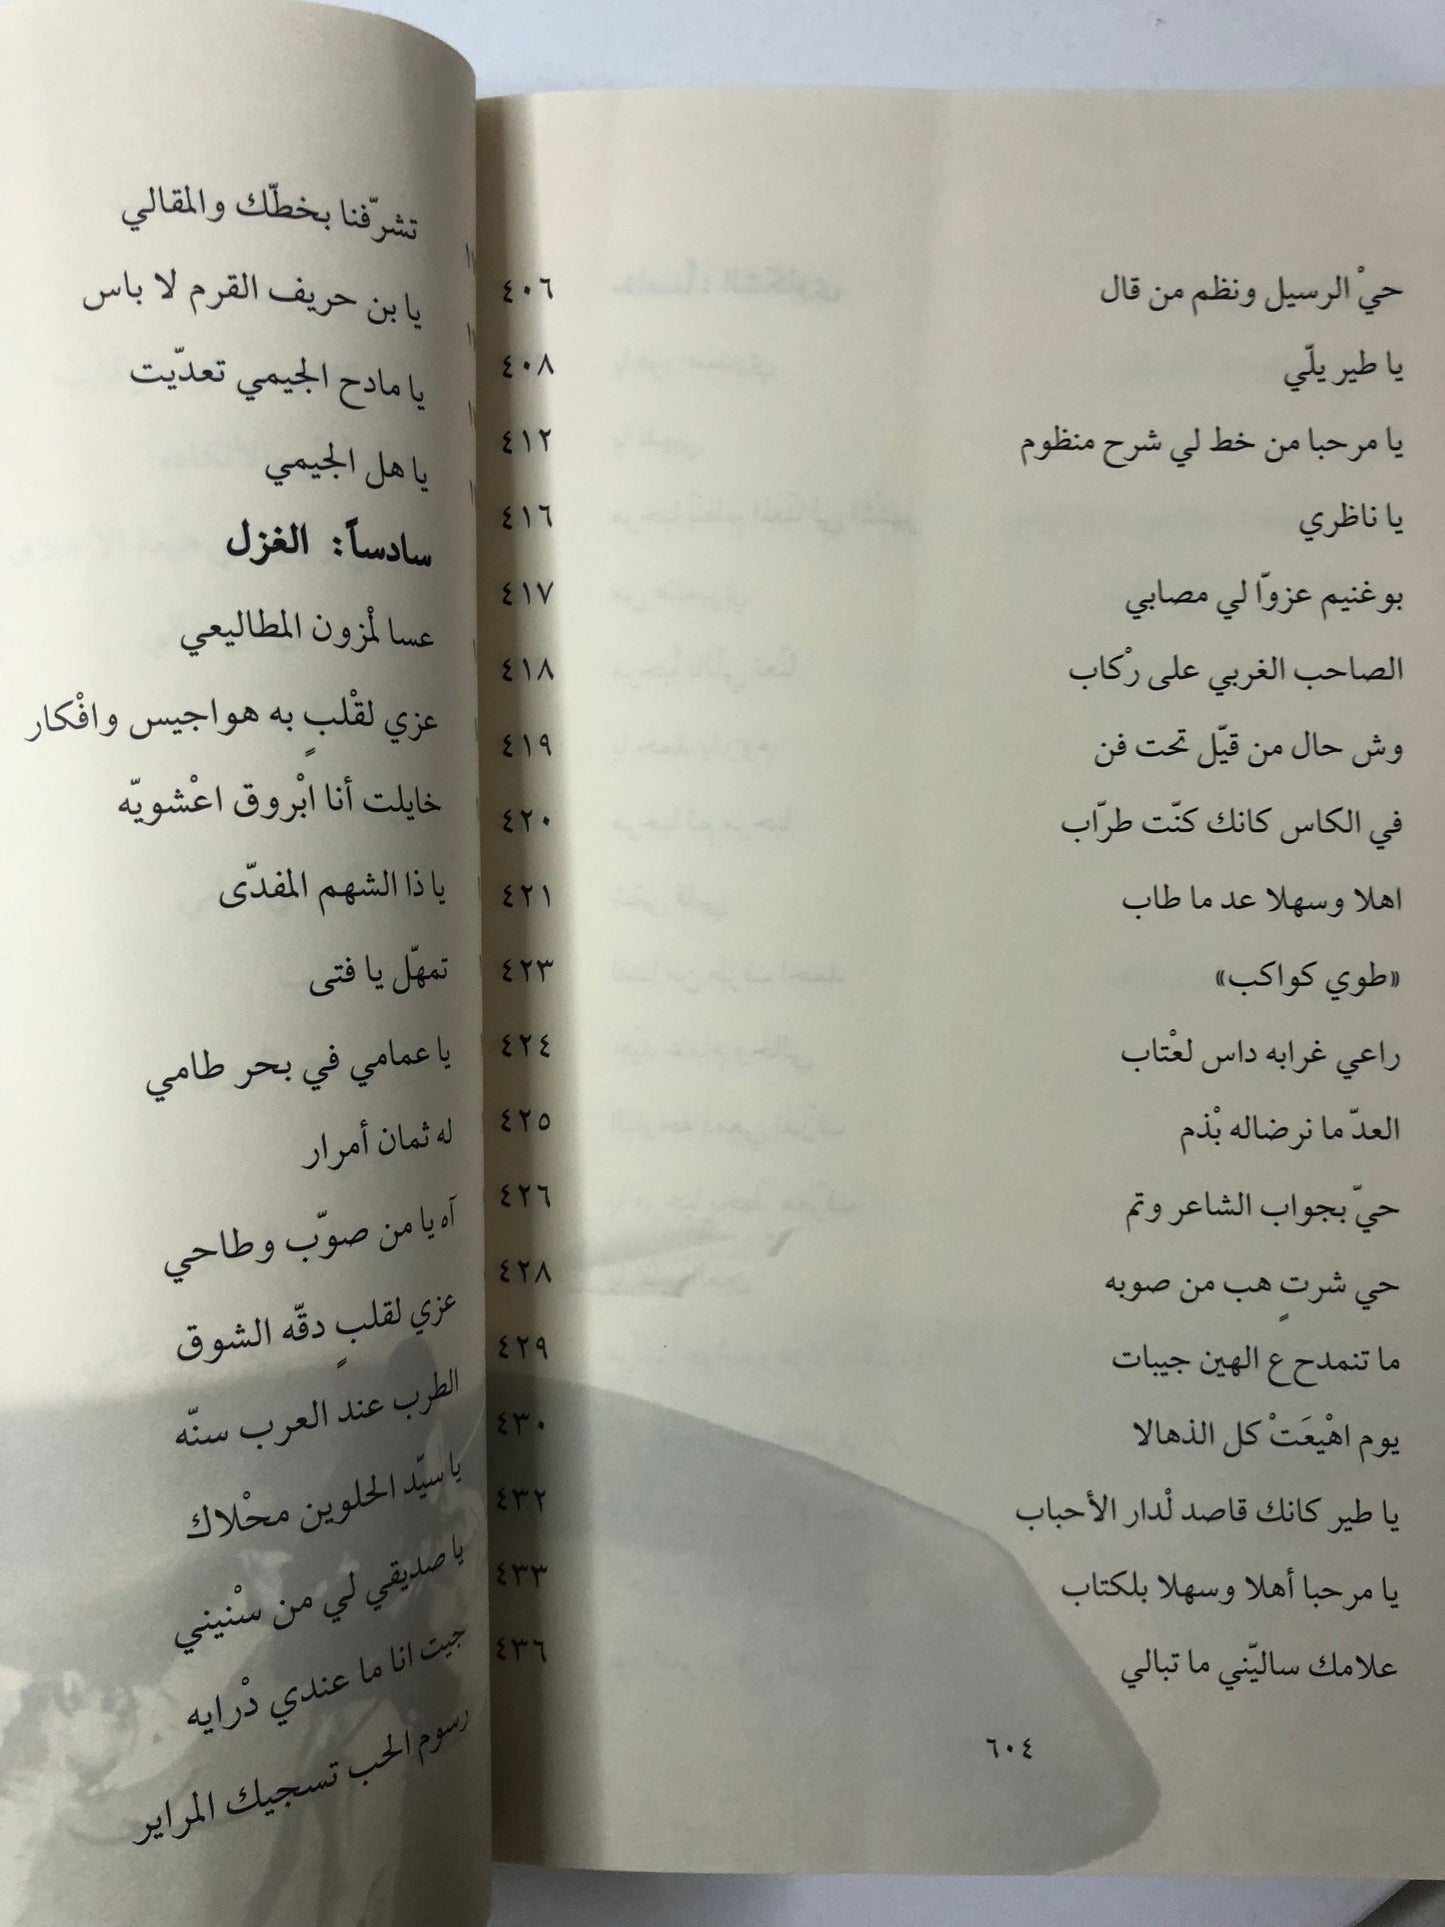 حيْ الرسيل ونظم من قال ٤٠٦
يا طير يلّي ٤٠٨
يا مرحبا من خط لي شرح منظوم ٤١٢
يا ناظري ٤١٦
بوغنيم عزوّا لي مصابي ٤١٧
الصاحب الغربي على رْكاب ٤١٨
وش حال من قيّل تحت فن ٤١٩
في الكاس كانك كنّت طرّاب ٤٢٠
اهلا وسهلا عد ما طاب ٤٢١
«طوي كواكب» ٤٢٣
راعي غرابه داس لعْتاب ٤٢٤
العدّ ما نرضاله بْذم ٤٢٥
حيّ بجواب الشاعر وتم ٤٢٦
حي شرتٍ هب من صوبه ٤٢٨
ما تنمدح ع الهين جيبات ٤٢٩
يوم اهْيعَتْ كل الذهالا ٤٣٠
يا طير كانك قاصد لْدار الأحباب ٤٣٢
يا مرحبا أهلا وسهلا بلكتاب ٤٣٣
علامك ساليّني ما تبالي ٤٣٦
٦٠٤
تشرّفنا بخطّك والمقالي
يا بن حريف القرم لا باس
يا مادح الجيمي تعدّيت
يا هل الجيمي
سادساً: الغزل
عسا لمْزون المطاليعي
عزي لقْلبٍ به هواجيس وافْكار
خايلت أنا ابْروق اعْشويّه
يا ذا الشهم المفدّى
تمهّل يا فتى
يا عمامي في بحر طامي
له ثمان أمرار
آه يا من صوّب وطاحي
عزي لقلبٍ دقّه الشوق
الطرب عند العرب سنّه
يا سيّد الحلوين محْلاك
يا صديقي لي من سنْيني
جيت انا ما عندي دْرايه
رسوم الحب تسجيك المراير